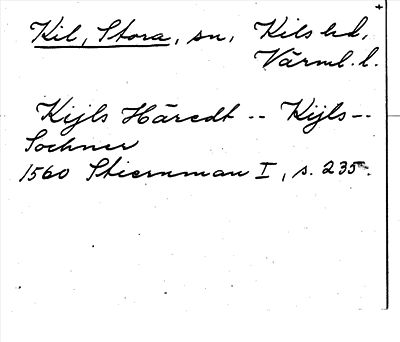 Kil, Stora, sn, Kils hd,
Värml. l.
Kijls Häredt -- Kijls--
Sochner
1560 Stiernman I, s. 235.